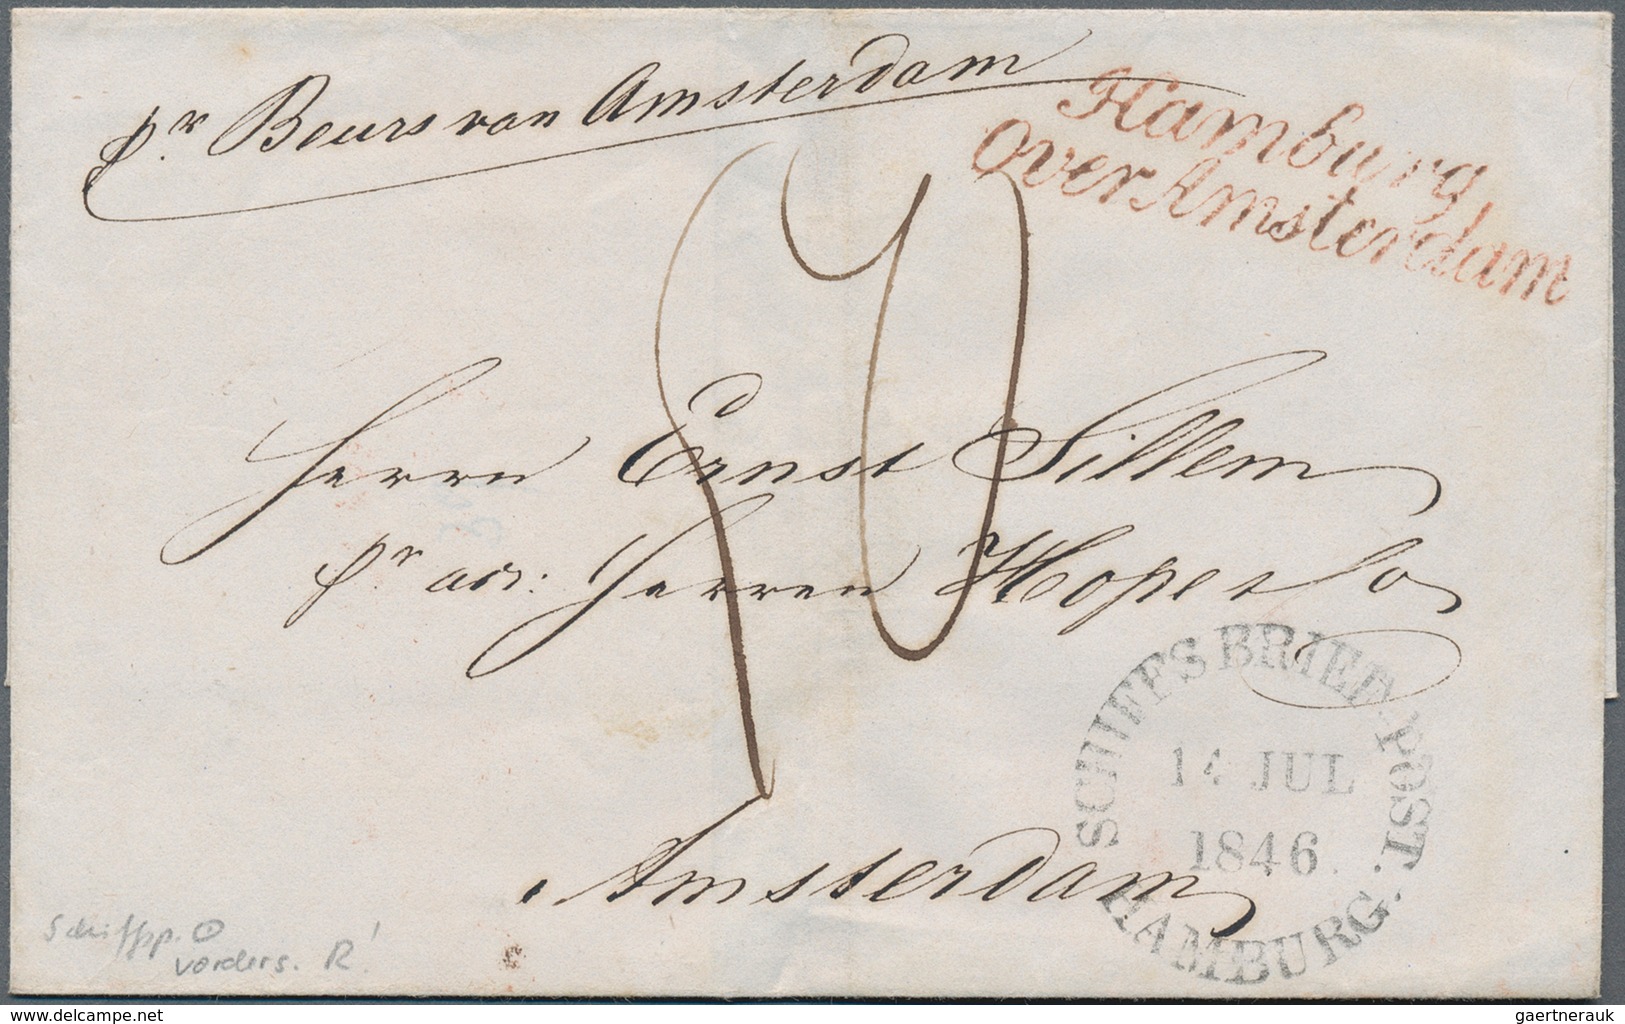 pr. Beurs van Amsterdam
Hamburg
over Amsterdam
Herrn Ernst Sillem
pr adr: Herren Hope & Co
Amsterdam
SCHIFFS BRIEF-POST.
14 JUL
1846.
HAMBURG.
Schiffsp.
vorders. R!
© www.delcampe.net
gaertnerauk